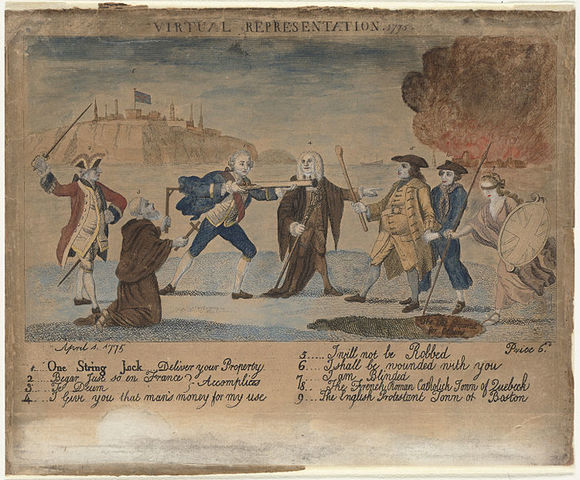 VIRTUAL REPRESENTATION. 1775.
April 1. 1775
Price 6d
1.. One String Jack, Deliver your Property
2... Begar Just so en France } Accomplices
3... Te Deum
4... I Give you that man's money for my use
5.... I will not be Robbed
6.... I shall be wounded with you
7.... I am Blinded
8... The French Roman Catholick Town of Quebeck
9... The English Protestant Town of Boston